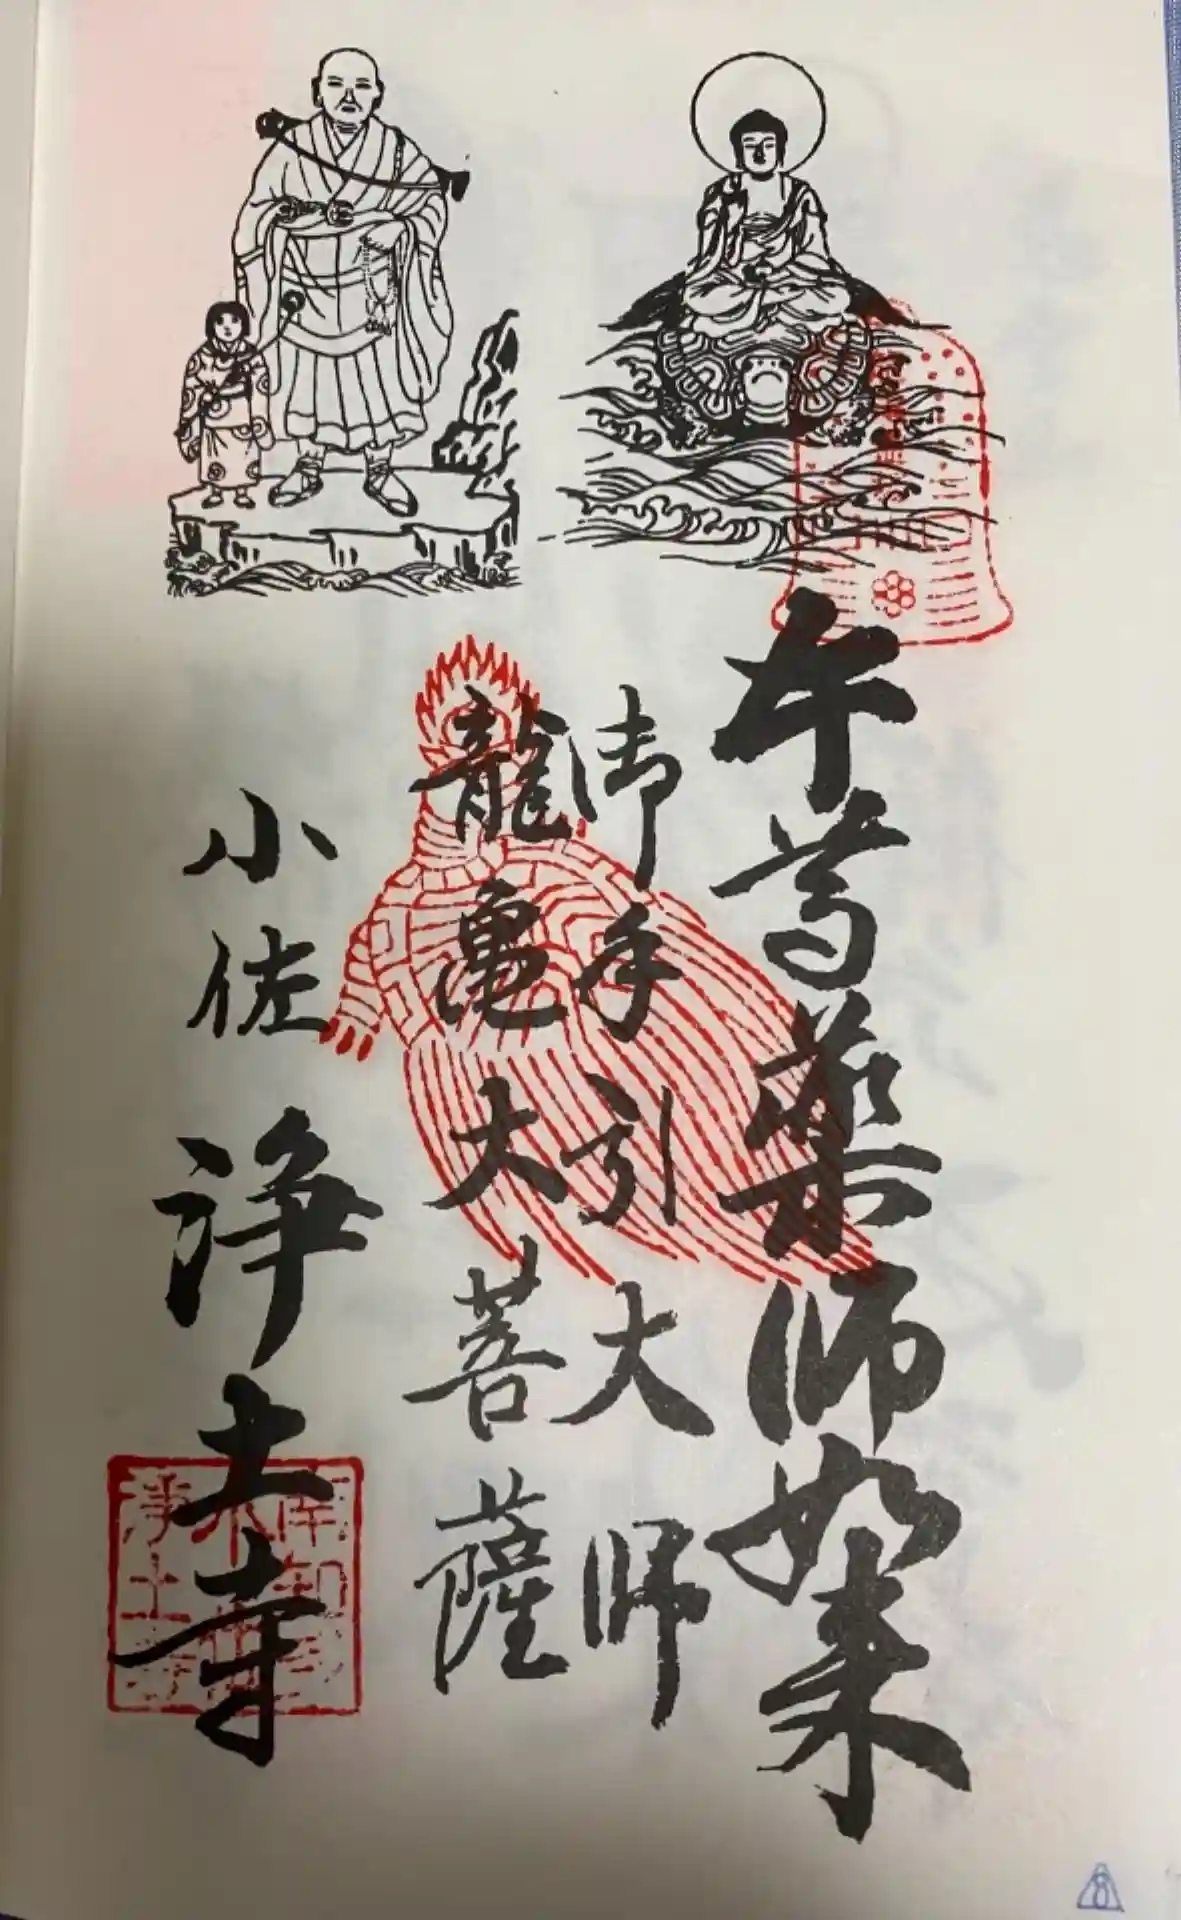 本尊薬師如来
御手引大師
龍亀大菩薩
小佐 浄土寺
8